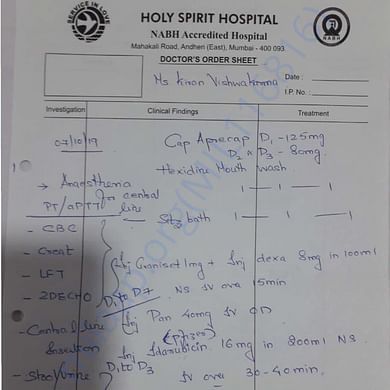 SERVICE IN LOVE
HOLY SPIRIT HOSPITAL
NABH Accredited Hospital
Mahakali Road, Andheri (East), Mumbai - 400 093.
NABH
DOCTOR'S ORDER SHEET
Ms Kiran Vishwakarma
Date :
I.P. No. :
Investigation Clinical Findings Treatment
07/10/19 Cap Aprecap D1 - 125mg
D2 & D3 - 80mg.
Hexidine Mouth Wash
→ Anaesthesia for central line 1 — 1 — 1
PT/aPTT Sitz bath 1 — 1 — 1
- CBC
- Creat Inj Graniset 1mg + Inj dexa 8mg in 100ml
- LFT NS IV over 15min
- 2DECHO D1 to D7
- Central line Insertion Inj Pan 40mg IV OD
(Pfizer)
Inj Idarubicin 16mg in 200ml NS.
D1 to D3 IV over 30-40min.